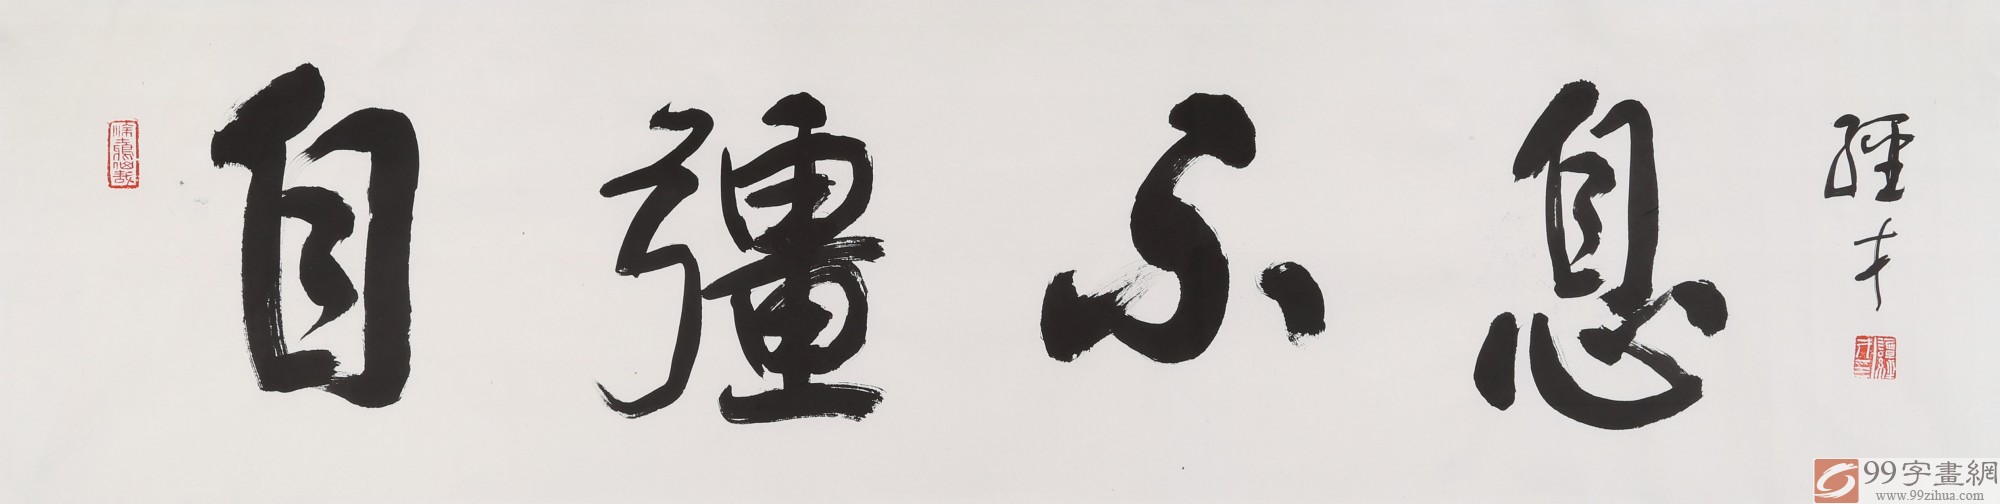 自彊不息
經才
99字畫網
www.99zihua.com